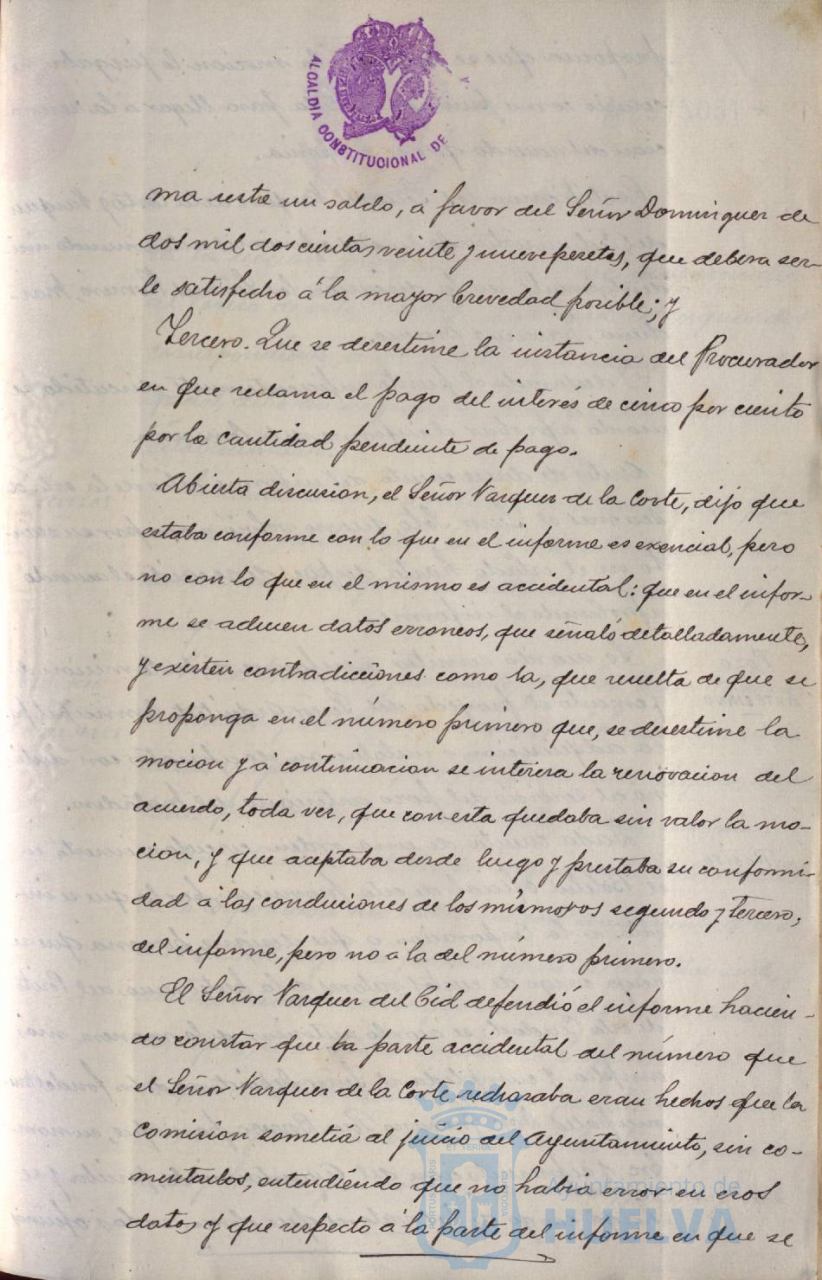 ALCALDIA CONSTITUCIONAL DE
ma resta un saldo, á favor del Señor Dominguez de
dos mil doscientas veinte y nueve pesetas, que debera ser-
le satisfecho á la mayor brevedad posible; y
Tercero. Que se desestime la instancia del Procurador
en que reclama el pago del interés de cinco por ciento
por la cantidad pendiente de pago.
Abierta discusion, el Señor Vazquez de la Corte, dijo que
estaba conforme con lo que en el informe es exencial, pero
no con lo que en el mismo es accidental: que en el infor-
me se aducen datos erroneos, que señaló detalladamente,
y existen contradicciones como la, que resulta de que se
proponga en el número primero que, se desestime la
mocion y á continuacion se interesa la renovacion del
acuerdo, toda vez, que con esta quedaba sin valor la mo-
cion, y que aceptaba desde luego y prestaba su conformi-
dad á las concluciones de los números segundo y tercero,
del informe, pero no á la del número primero.
El Señor Vazquez del Cid defendió el informe hacien-
do constar que la parte accidental del número que
el Señor Vazquez de la Corte rechazaba eran hechos que la
Comision sometiá al juicio del Ayuntamiento, sin co-
mentarlos, entendiéndo que no habia error en esos
datos y que respecto á la parte del informe en que se
Ayuntamiento de
HUELVA